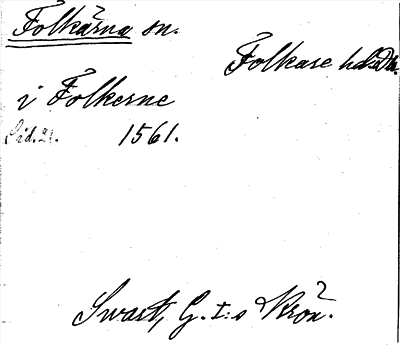 Folkärna sn.
Folkare hd Da.
i Folkerne
Sid. 21. 1561.
Swart, G. I:s Krön.